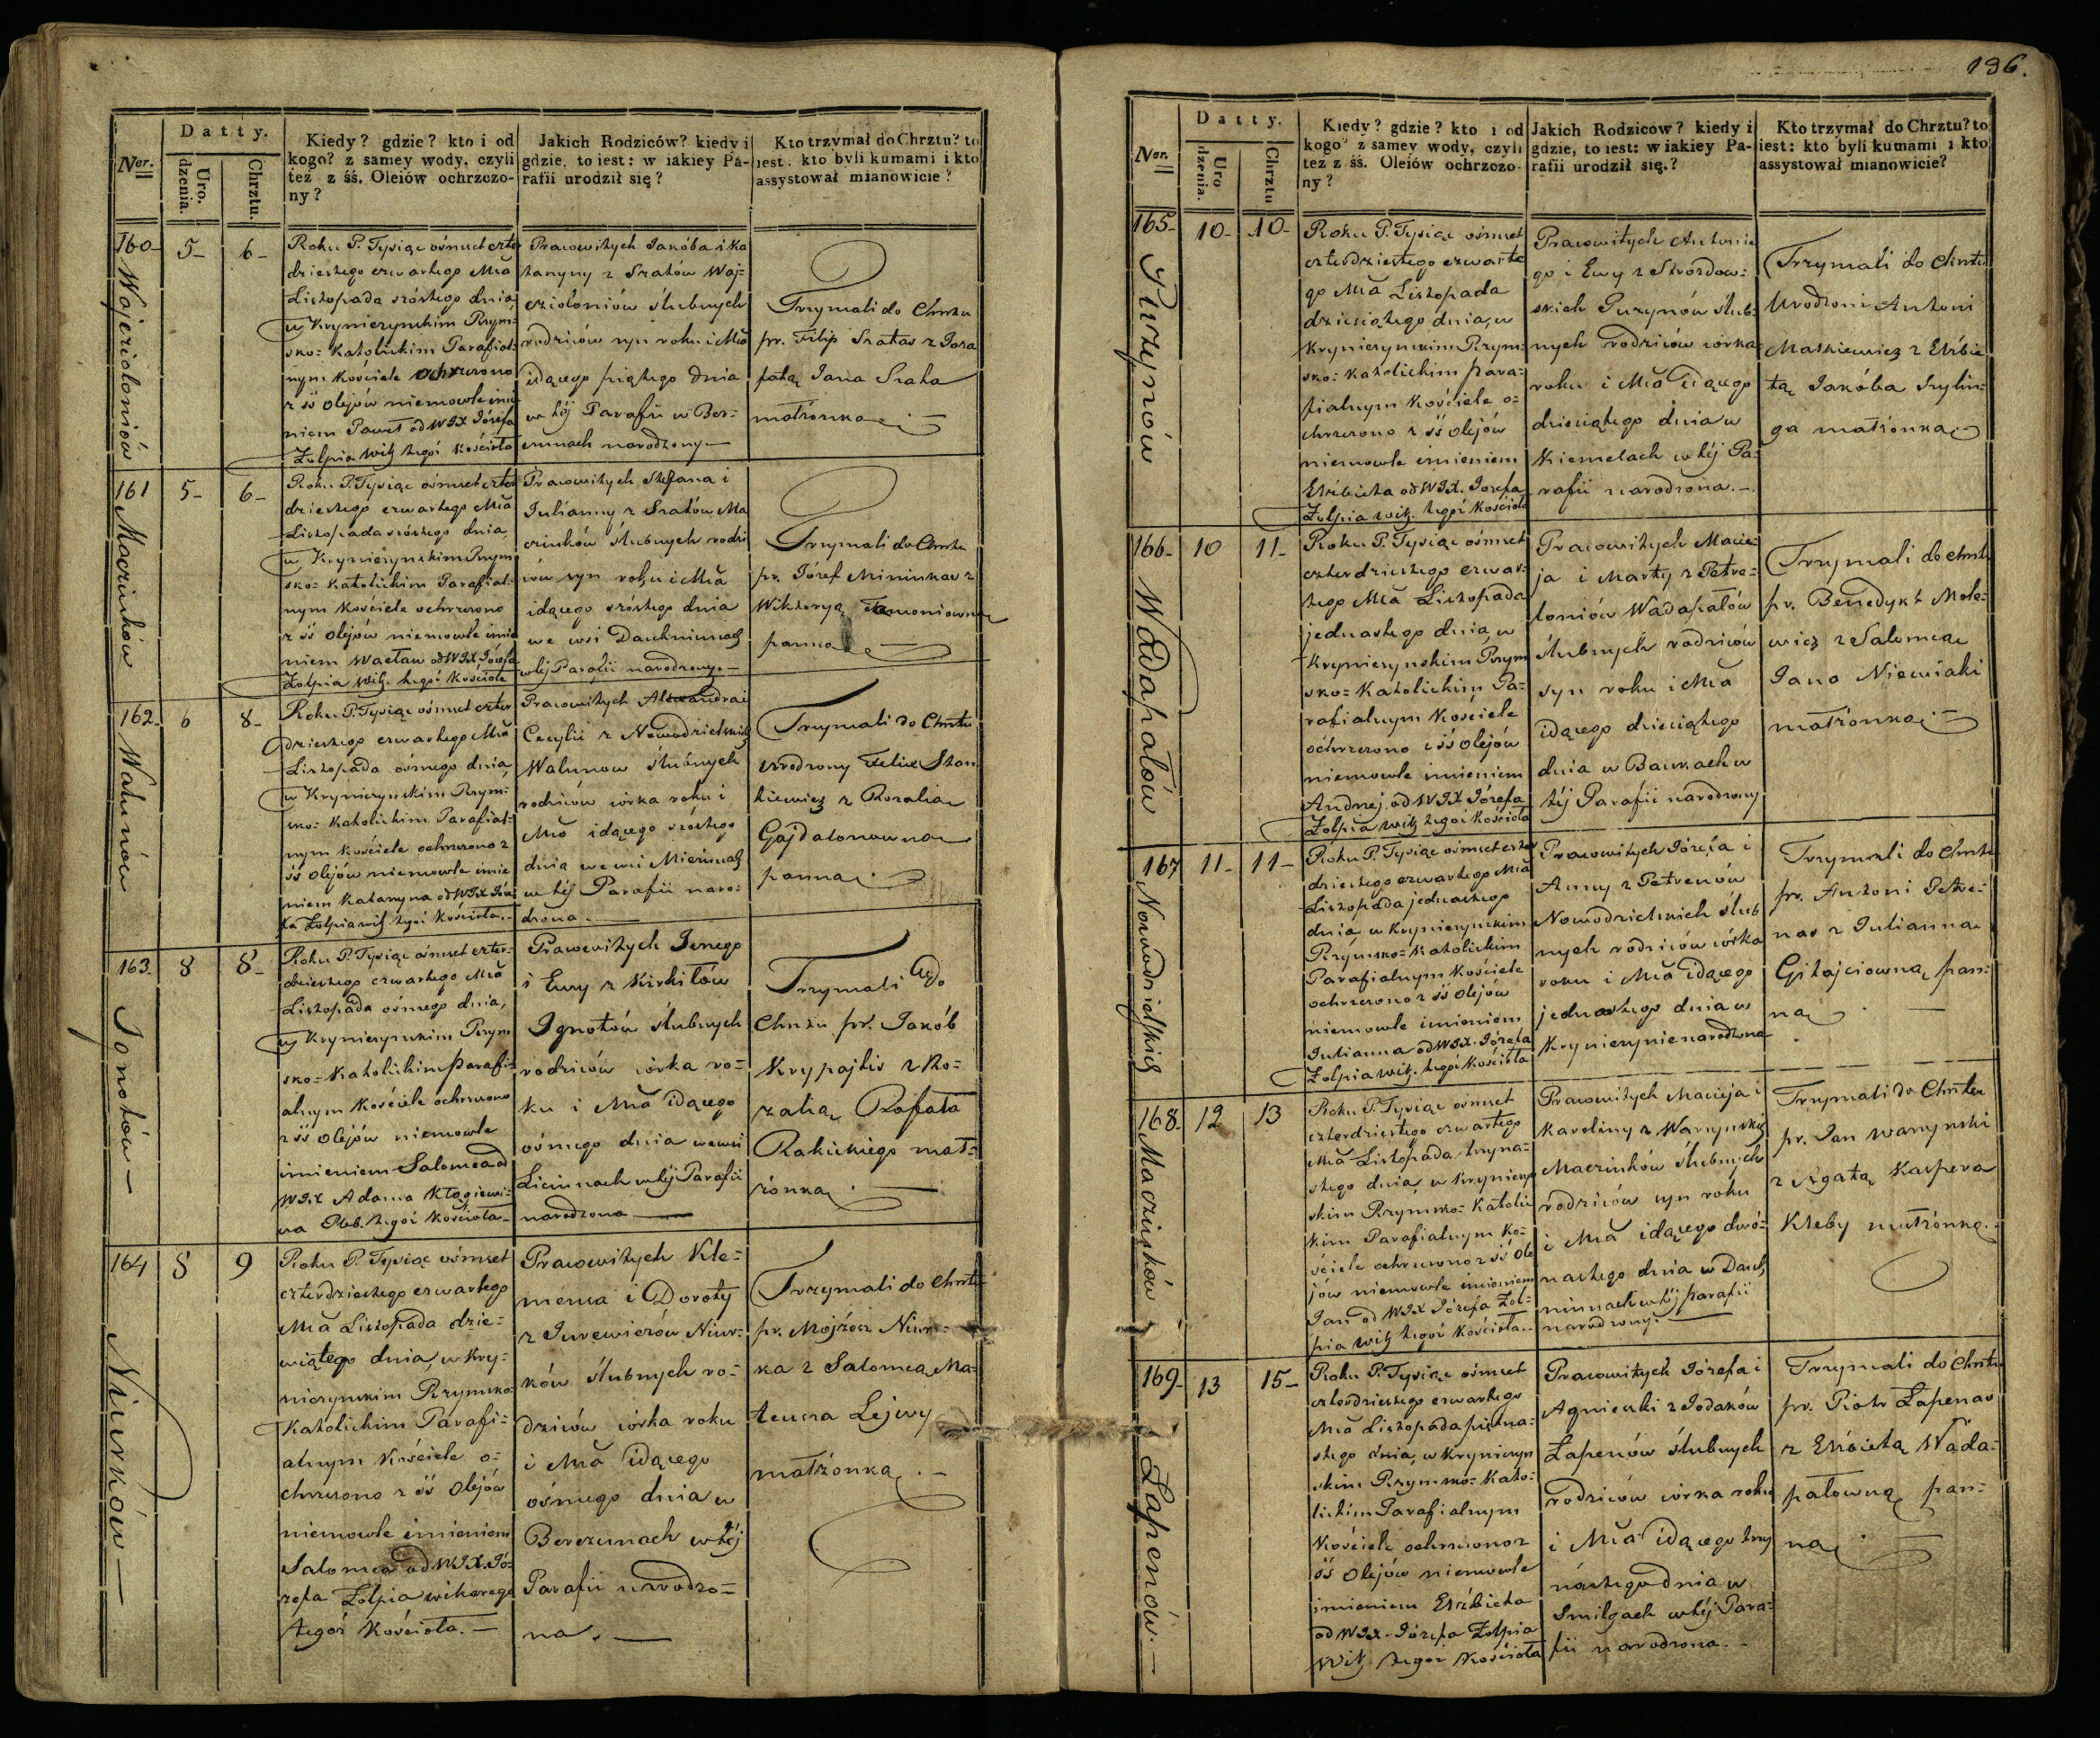 Ner.
Datty.
Uro.
dzenia.
Chrztu.
Kiedy? gdzie? kto i od
kogo? z samey wody, czyli
też z śś. Oleiów ochrzczo-
ny?
Jakich Rodziców? kiedy i
gdzie, to iest: w iakiey Pa-
rafii urodził się?
Kto trzymał do Chrztu? to
iest. kto byli kumami i kto
assystował mianowicie?
160
Wojciołoniów
5
6
Roku P. Tysiąc ośmset czter
dziestego czwartego Mca
Listopada szóstego dnia
w Kryniczynskim Rzym-
sko-Katolickim Parafial-
nym Kościele ochrzczono
z śś olejów niemowle imie
niem Paweł od WJX Józefa
Zołpia Wik tegoż Kościoła
Pracowitych Jakóba i Ka
tarzyny z Szatów Woj-
ciołoniów ślubnych
rodziców syn roku i Mca
idącego piątego dnia
w téj Parafii w Ber-
czunach narodzony
Trzymali do Chrztu
pr. Filip Szatas z Joza
fatą Jana Szata
małżonką
161
Maczinków
5
6
Roku P. Tysiąc ośmset czter
dziestego czwartego Mca
Listopada szóstego dnia,
w Krynieynskim Rzym
sko-Katolickim Parafial-
nym Kościele ochrzczono
z śś olejów niemowle imie
niem Wacław od WJX Józefa
Zołpia Wik. tegoż Kościoła
Pracowitych Stefana i
Julianny z Szatów Ma
czinków ślubnych rodzi
ców syn roku i Mca
idącego szóstego dnia
we wsi Daukniunach
w téj Parafii narodzony
Trzymali do Chrztu
pr. Józef Mininkas z
Wiktoryą
panną
162
Walunów
6
8
Roku P. Tysiąc ośmset czter
dziestego czwartego Mca
Listopada ośmego dnia,
w Krynieynskim Rzym-
sko-Katolickim Parafial-
nym Kościele ochrzczono z
śś olejów niemowle imie
niem Katarzyna od WJX Józe
fa Zołpia wik tegoż Kościoła
Pracowitych Alexandra i
Cecylii z Nowodzielskich
Walunow ślubnych
rodziców córka roku i
Mca idącego szóstego
dnia we wsi Mieńunach
w téj Parafii naro-
dzona
Trzymali do Chrztu
urodzony Felix Stan
kiewicz z Rozalią
Gajdalonowną
panną
163
Ignotów
8
8
Roku P. Tysiąc ośmset czter-
dziestego czwartego Mca
Listopada ośmego dnia,
w Krynieynskim Rzym
sko-Katolickim Parafi-
alnym Kościele ochrzczono
z śś olejów niemowle
imieniem Salomea od
WJX Adama Kłągiewi-
cza Pleb. tegoż Kościoła
Pracowitych Jerzego
i Ewy z Kirkiłów
Ignotów ślubnych
rodziców córka ro-
ku i Mca idącego
ośmego dnia we wsi
Liciunach w téj Parafii
narodzona
Trzymali do
Chrztu pr. Jakób
Krypajtis z Ro-
zalią Rafała
Rakickiego mał-
żonką
164
Niurków
8
9
Roku P. Tysiąc ośmset
czterdziestego czwartego
Mca Listopada dzie-
wiątego dnia, w Kry-
nieynskim Rzymsko
Katolickim Parafi-
alnym Kościele o-
chrzczono z śś Olejów
niemowle imieniem
Salomea od WJX. Jó-
zefa Zołpia wikarego
tegoż Kościoła.
Pracowitych Kle-
mensa i Doroty
z Jurewiczów Niur-
ków ślubnych ro-
dziców córka roku
i Mca idącego
ośmego dnia w
Berczunach w téj
Parafii narodzo-
na.
Trzymali do Chrztu
pr. Mojżesz Niur-
ka z Salomeą Ma-
teusza Lejwy
małżonką
196.
Ner.
Datty.
Uro
dzenia.
Chrztu
Kiedy? gdzie? kto i od
kogo z samey wody, czyli
też z śś. Oleiów ochrzczo-
ny?
Jakich Rodzicow? kiedy i
gdzie, to iest: w iakiey Pa-
rafii urodził się.?
Kto trzymał do Chrztu? to
iest: kto byli kumami i kto
assystował mianowicie?
165
Puzynów
10
10
Roku P. Tysiąc ośmset
czterdziestego czwarte
go Mca Listopada
dziesiątego dnia, w
Krynieynskim Rzym-
sko-Katolickim para-
fialnym Kościele o-
chrzczono z śś olejów
niemowle imieniem
Elżbieta od WJX. Józefa
Zołpia wik. tegoż Kościoła
Pracowitych Antonie
go i Ewy z Skórdow-
skich Puzynów ślub-
nych rodziców córka
roku i Mca idącego
dziesiątego dnia w
Kiemelach w téj Pa-
rafii narodzona.
Trzymali do Chrztu
Urodzoni Antoni
Matkiewicz z Elżbie
tą Jakóba Szylin-
ga małżonką
166
Wadapałów
10
11
Roku P. Tysiąc ośmset
czterdziestego czwar-
tego Mca Listopada
jednastego dnia, w
Krynieynskim Rzym
sko-Katolickim Pa-
rafialnym Kościele
ochrzczono z śś Olejów
niemowle imieniem
Andrzej od WJX Józefa
Zołpia wik tegoż Kościoła
Pracowitych Macie-
ja i Marty z Petre-
loniów Wadapałów
ślubnych rodziców
syn roku i Mca
idącego dziesiątego
dnia w Baukach w
téj Parafii narodzony
Trzymali do Chrztu
pr. Benedykt Mole-
wicz z Salomeą
Jana Niewiaki
małżonką
167
Nowodzielskich
11
11
Roku P. Tysiąc ośmset czter
dziestego czwartego Mca
Listopada jednastego
dnia w Krynieynskim
Rzymsko-Katolickim
Parafialnym Kościele
ochrzczono z śś Olejów
niemowle imieniem
Julianna od WJX. Józefa
Zołpia wik. tegoż Kościoła
Pracowitych Józefa i
Anny z Petrenów
Nowodzielskich ślub
nych rodziców córka
roku i Mca idącego
jednastego dnia w
Krynieynie narodzona
Trzymali do Chrztu
pr. Antoni Petre-
nas z Julianną
Gitajciowną pan-
ną
168
Maczinków
12
13
Roku P. Tysiąc ośmset
czterdziestego czwartego
Mca Listopada trzyna-
stego dnia, w Krynieyn
skim Rzymsko-Katolic
kim Parafialnym Ko-
ściele ochrzczono z śś Ole
jów niemowle imieniem
Jan od WJX Józefa Zoł-
pia wik tegoż Kościoła.
Pracowitych Macieja i
Karoliny z Warzynskich
Maczinków ślubnych
rodziców syn roku
i Mca idącego dwó-
nastego dnia w Dauk
niunach w téj parafii
narodzony.
Trzymali do Chrztu
pr. Jan Warzynski
z Agatą Kaspera
Kleby małżonką.
169
Łapenów.
13
15
Roku P. Tysiąc ośmset
czterdziestego czwartego
Mca Listopada piętna-
stego dnia, w Krynieyn
skim Rzymsko-Kato-
lickim Parafialnym
Kościele ochrzczono z
śś Olejów niemowle
imieniem Elżbieta
od WJX. Józefa Zołpia
Wik tegoż Kościoła
Pracowitych Józefa i
Agnieszki z Jodaków
Łapenów ślubnych
rodziców córka roku
i Mca idącego trzy
nastego dnia w
Smilgach w téj Para-
fii narodzona.
Trzymali do Chrztu
pr. Piotr Łapenas
z Elżbietą Wada-
pałowną pan-
ną